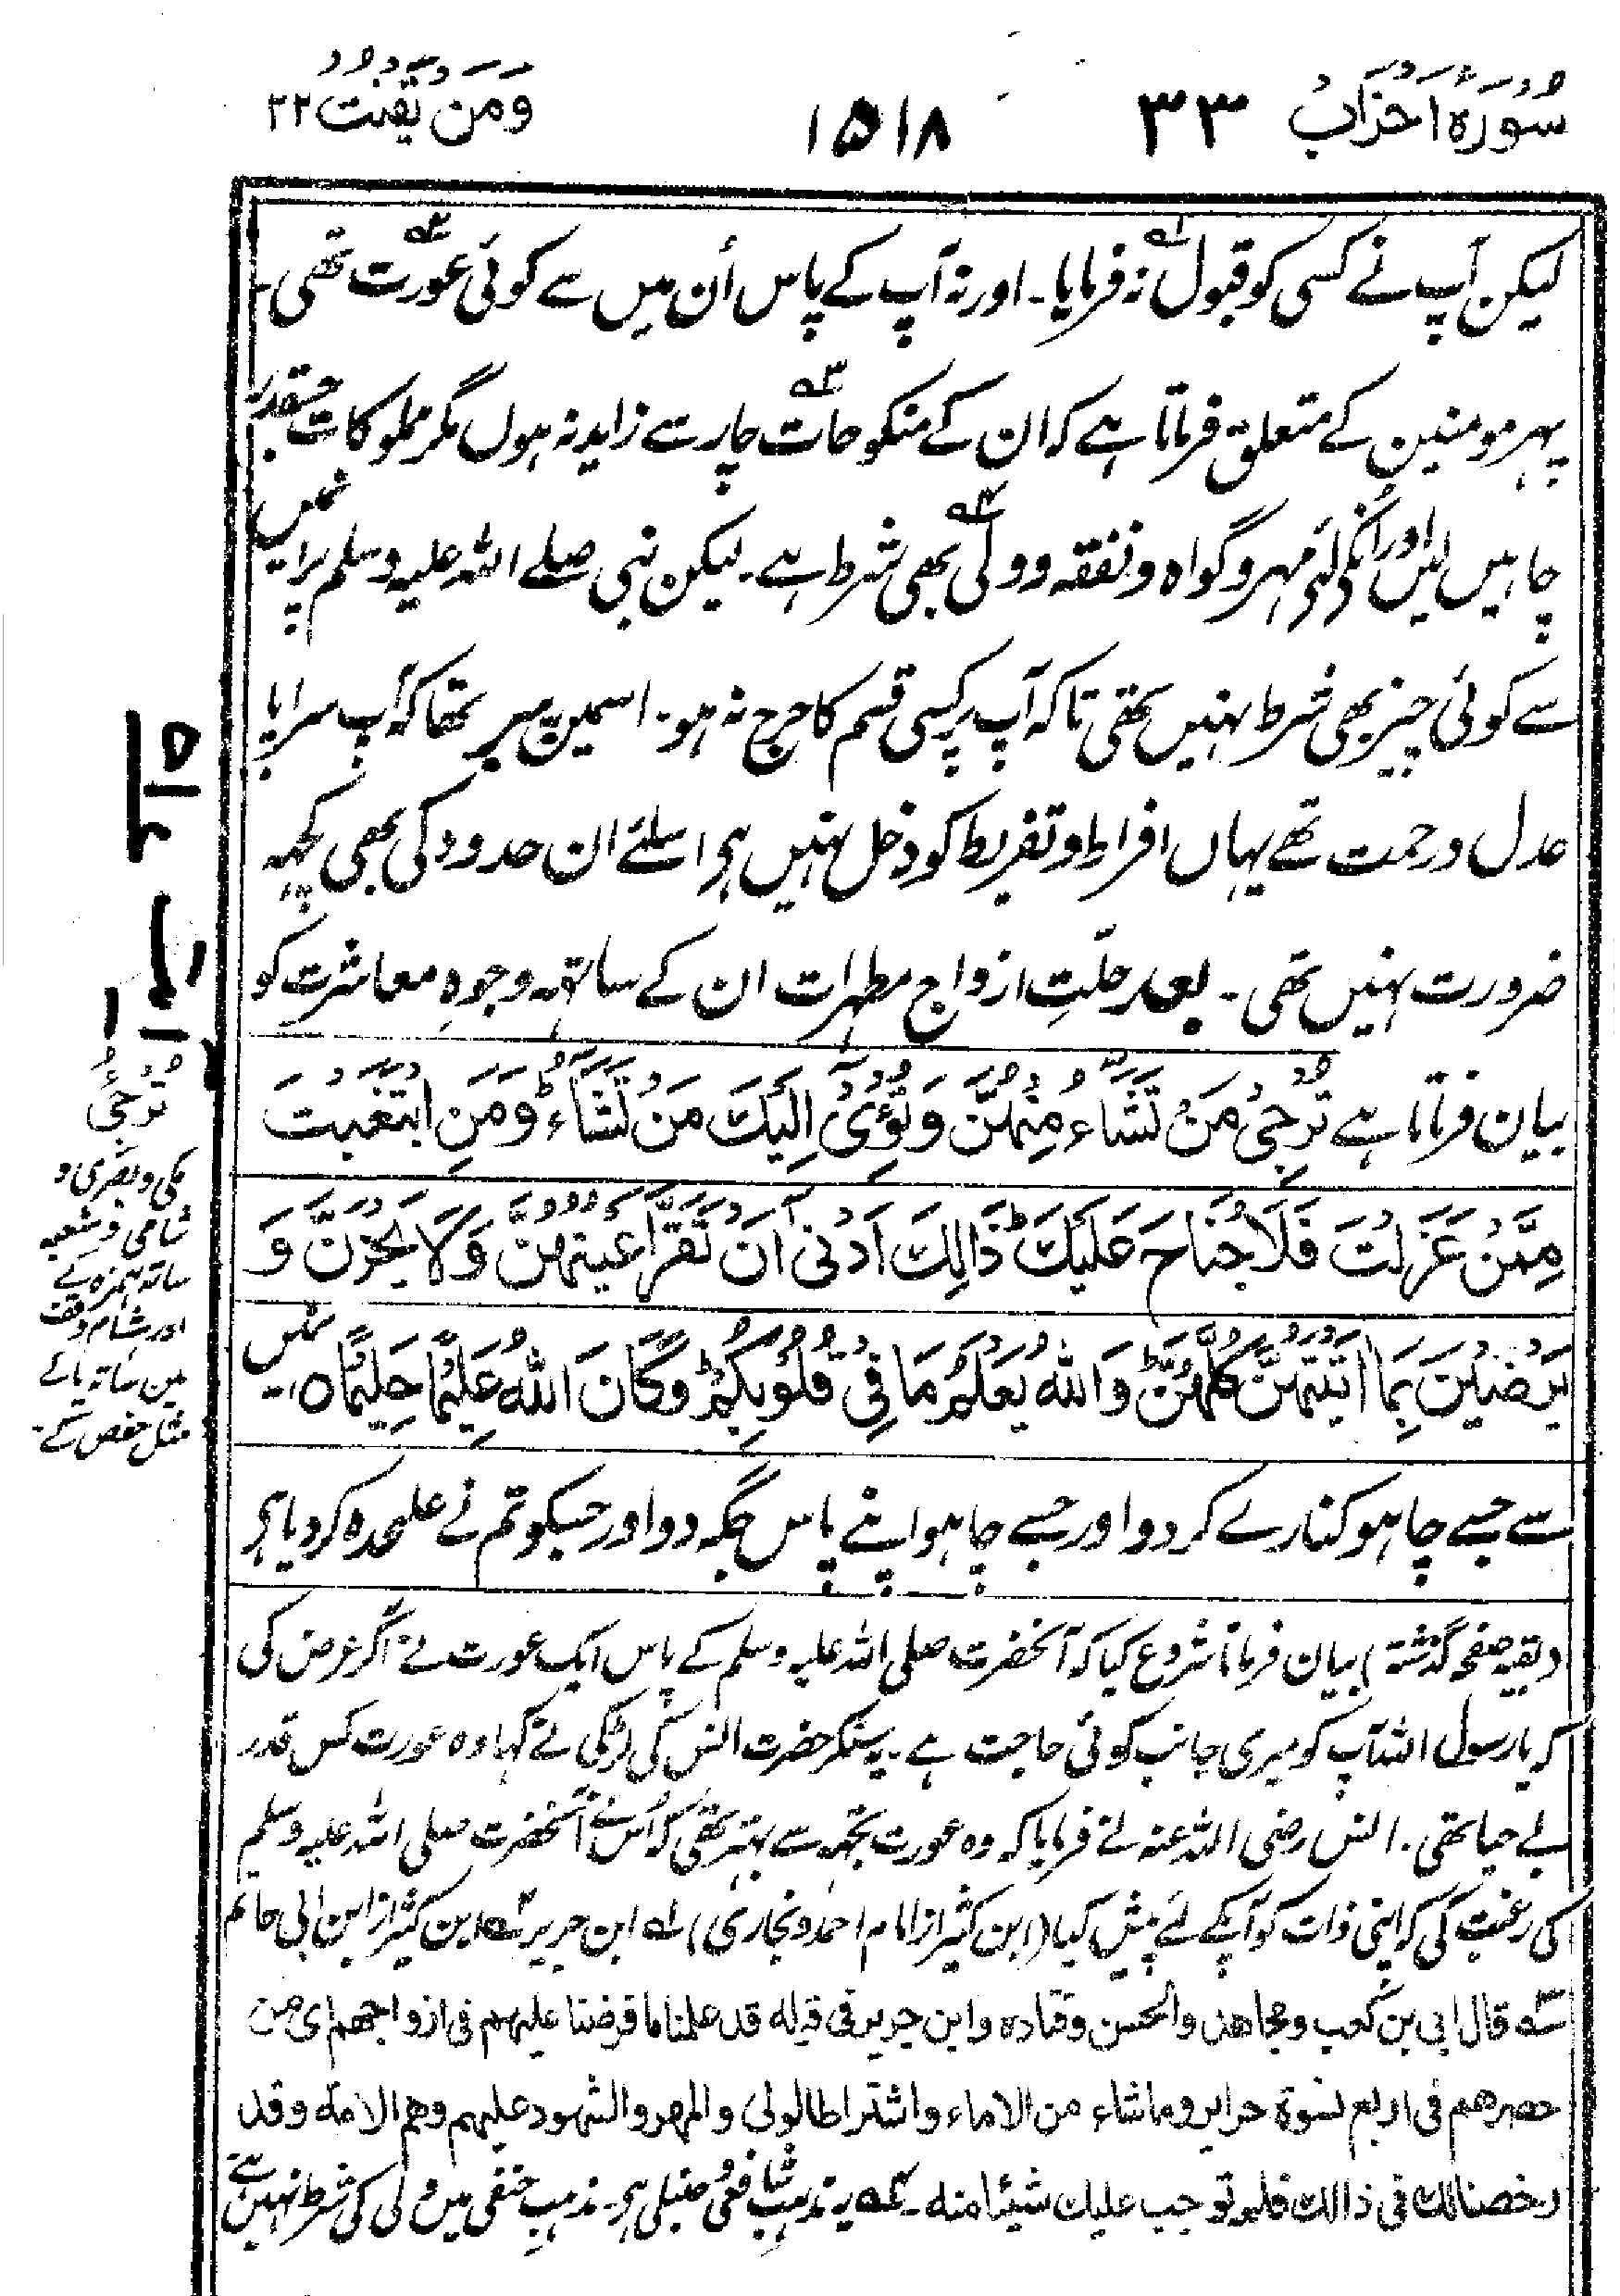 سُورَہ اَحزَاب ۳۳ ۱۵۱۸ وَمَن یَّقنُت ۲۲
لیکن آپ نے کسی کو قبول نہ فرمایا۔ اور نہ آپ کے پاس اُن میں سے کوئی عورت تھی۔
پہر مومنین کے متعلق فرماتا ہے کہ ان کے منکوحات چار سے زاید نہ ہوں مگر مملوکات جسقدر
چاہیں لیں اور انکے لئے مہر وگواہ ونفقہ وولی بھی شرط ہے۔ لیکن نبی صلے اللہ علیہ وسلم پر ان میں
سے کوئی چیز بھی شرط نہیں تھی تاکہ آپ پر کسی قسم کا حرج نہ ہو۔ اسمیں تھا کہ آپ سراپا
عدل ورحمت تھے یہاں افراط وتفریط کو دخل نہیں ہی اسلئے ان حدود کی بھی کچہہ
ضرورت نہیں تھی۔ بعد حلّتِ ازواج مطہرات ان کے ساتہہ وجوہِ معاشرت کو
بیان فرماتا ہے تُرْجِیْ مَنْ تَشَآءُ مِنْهُنَّ وَتُؤْیْٓ اِلَیْكَ مَنْ تَشَآءُ ؕ وَمَنِ ابْتَغَیْتَ
مِمَّنْ عَزَلْتَ فَلَا جُنَاحَ عَلَیْكَ ؕ ذَالِكَ اَدْنٰۤی اَنْ تَقَرَّ اَعْیُنُهُنَّ وَلَا یَحْزَنَّ وَ
یَرْضَیْنَ بِمَا اٰتَیْتَهُنَّ كُلُّهُنَّ ؕ وَاللّٰهُ یَعْلَمُ مَا فِیْ قُلُوْبِكُمْ ؕ وَكَانَ اللّٰهُ عَلِیْمًا حَلِیْمًا ہ ان میں
سے جسے چاہو کنارے کر دو اور جسے چاہو اپنے پاس جگہ دو اور جسکو تم نے علٰحدہ کر دیا ہی
تُرْجِئُ
مکی وبصری و
شامی وشعبہ
ساتہ ہمزہ کے
اور ہشام وقف
میں ساتہ یائے
مثل حفص کے۔
(بقیہ صفحہ گذشتہ) بیان فرمانا شروع کیا کہ آنحضرت صلی اللہ علیہ وسلم کے پاس ایک عورت نے آکر عرض کی
کہ یا رسول اللہ آپ کو میری جانب کوئی حاجت ہے۔ یہ سنکر حضرت انس کی لڑکی نے کہا وہ عورت کس قدر
بے حیا تھی۔ انس رضی اللہ عنہ نے فرمایا کہ وہ عورت تجہہ سے بہتر تھی کہ اُس نے آنحضرت صلی اللہ علیہ وسلم
کی رغبت کی کہ اپنی ذات کو آپکے لئے پیش کیا (ابن کثیر از امام احمد وبخاری) ۱ہ ابن جریر ۲ہ ابن کثیر از ابن ابی حاتم
۳ہ قال ابی بن کعب ومجاهد والحسن وقتادہ وابن جریر فی قوله قد علمنا ما فرضنا علیهم فی ازواجهم ای من
حصرهم فی اربع نسوة حرایر وما شاء من الاماء واشتراط الولی والمهر والشهود علیهم وهم الامة وقد
رخصنا لك فی ذالك فلم نوجب علیك شیئا منه۔ ۴ہ یہ مذہب شافعی وحنبلی ہی۔ مذہب حنفی میں ولی کی شرط نہیں ہے